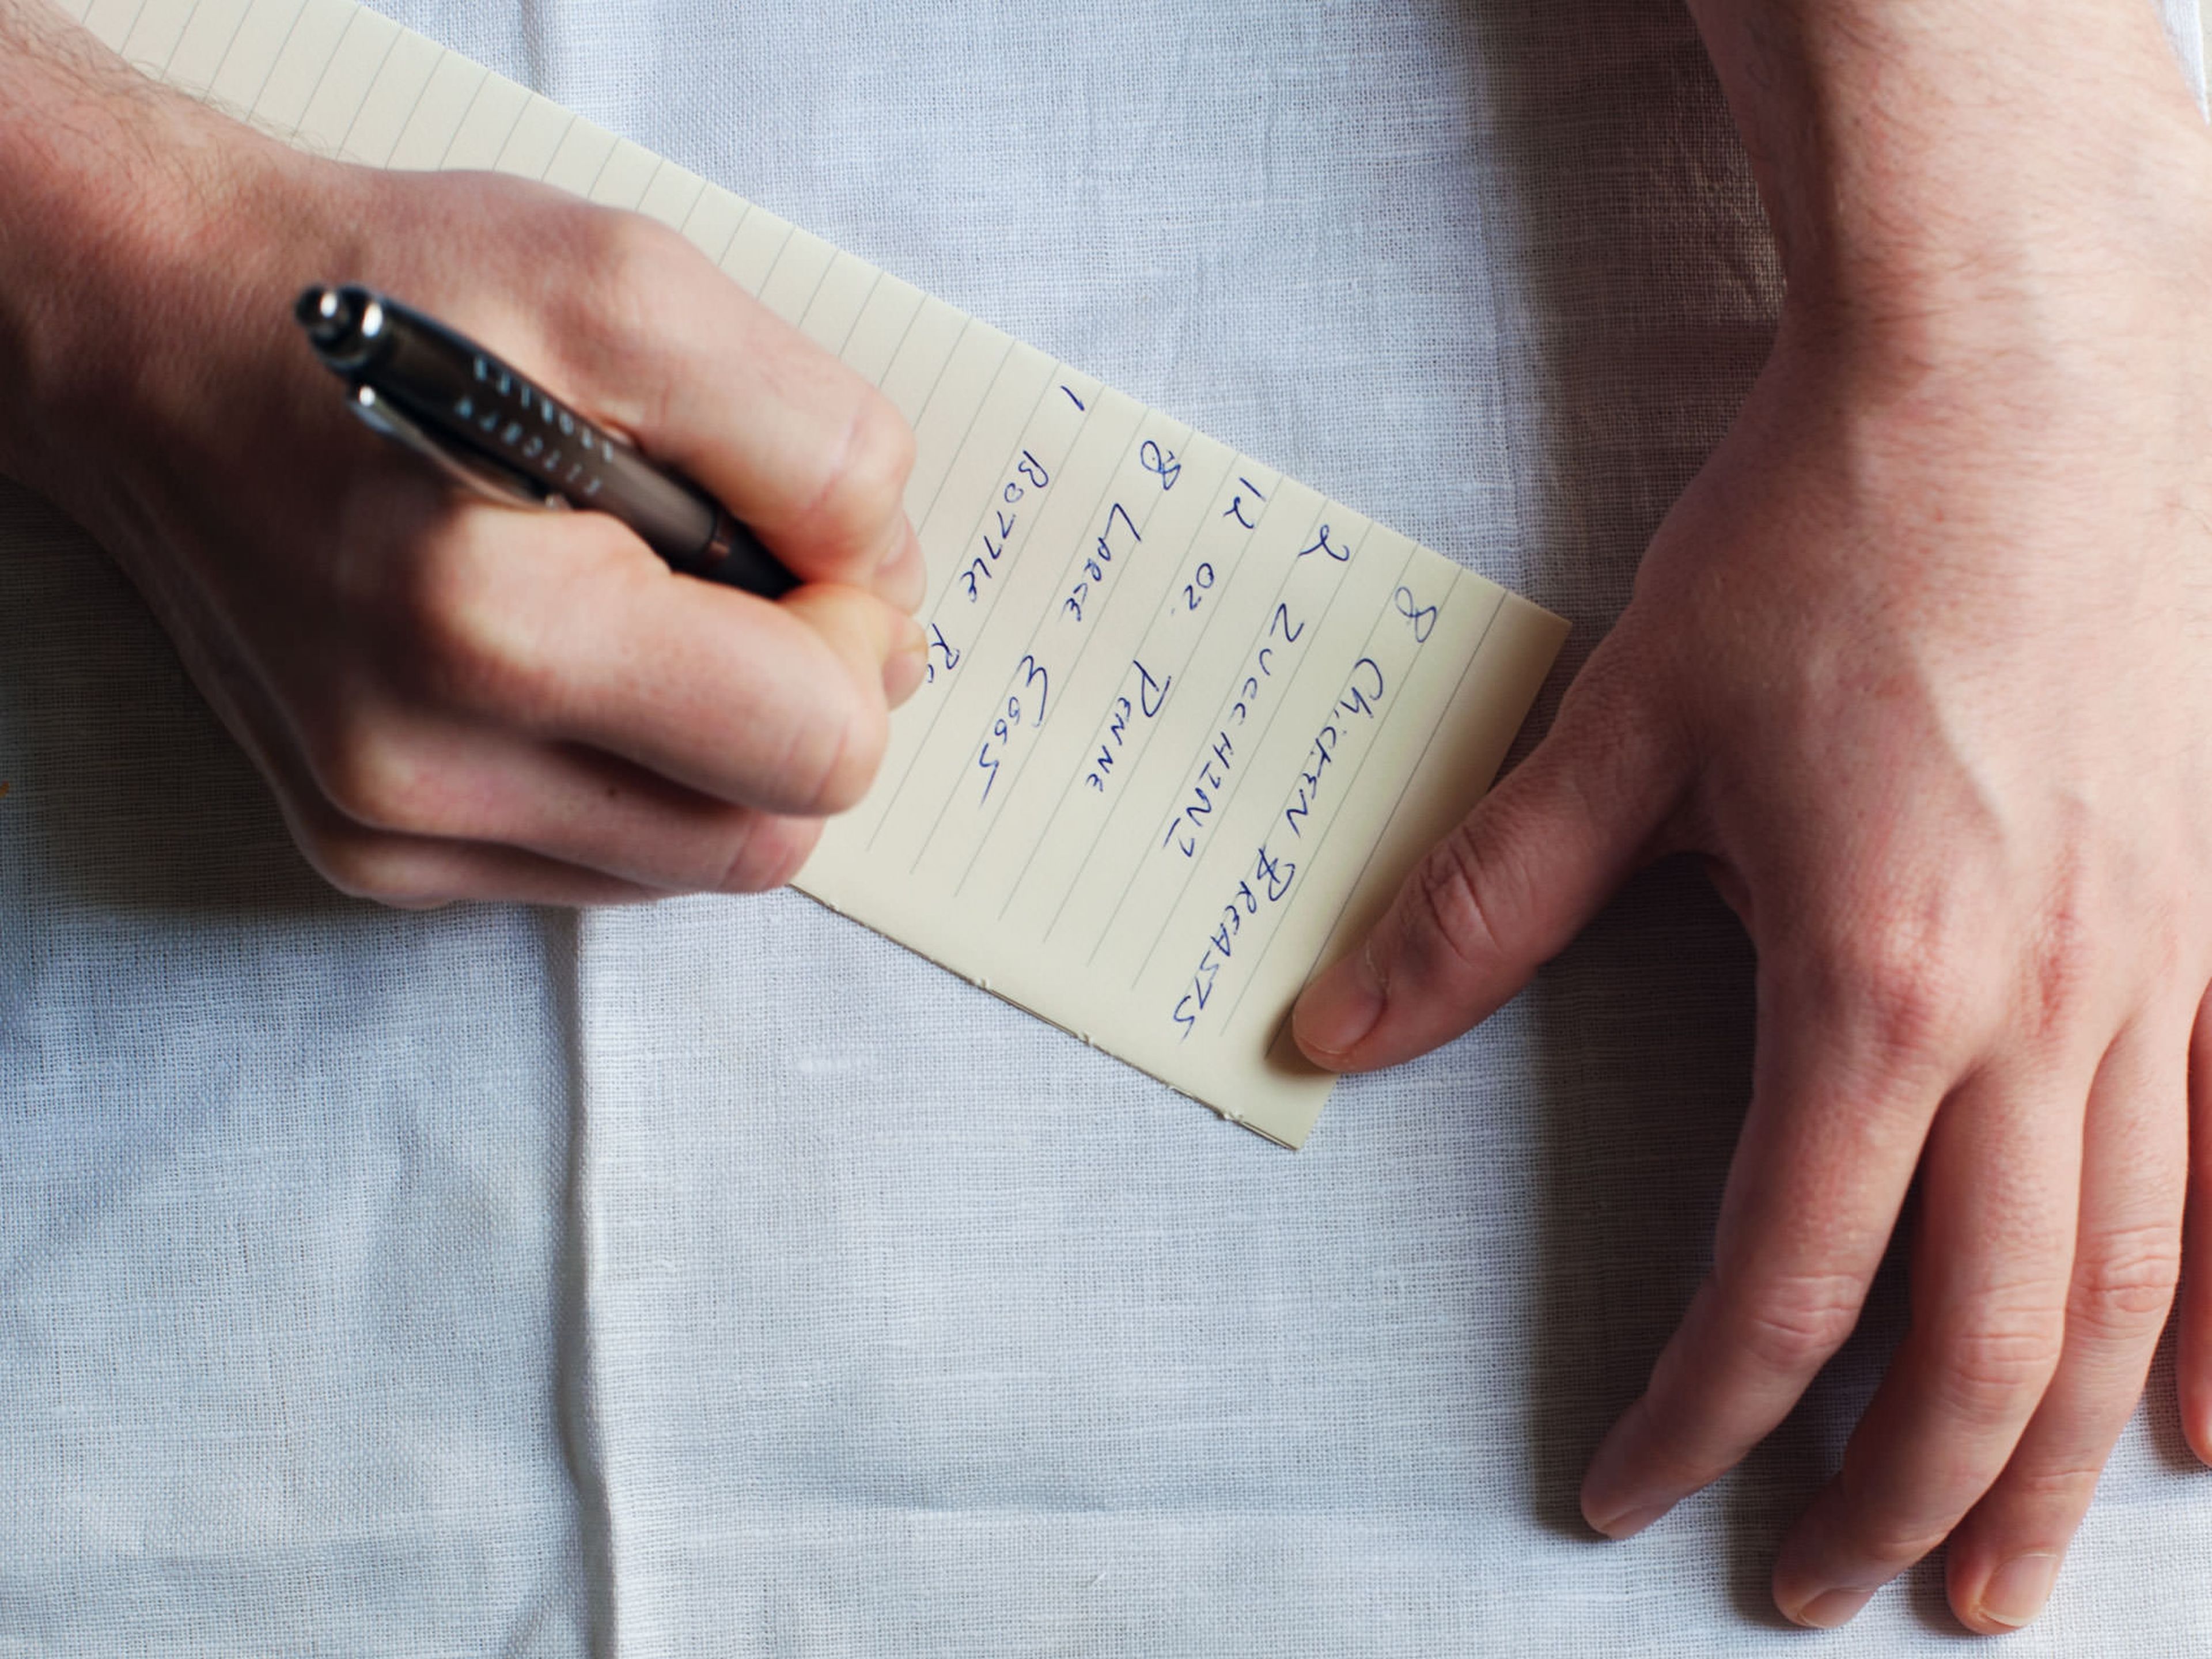 8 Chicken Breasts
2 Zucchini
12 oz. Penne
8 Large Eggs
1 Bottle